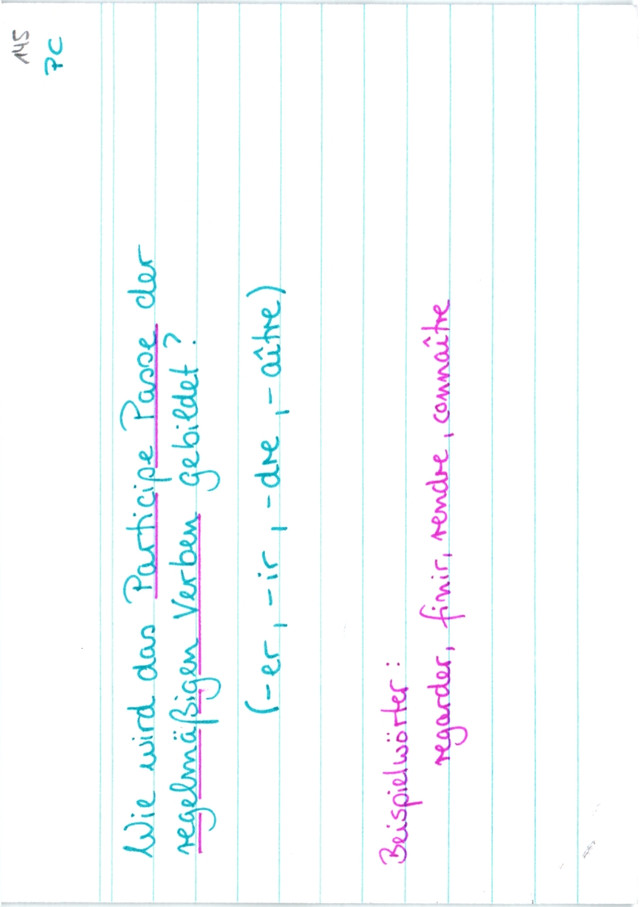 145
PC
Wie wird das Participe Passe der
regelmäßigen Verben gebildet?
(-er, -ir, -dre, -aître)
Beispielwörter:
regarder, finir, rendre, connaître